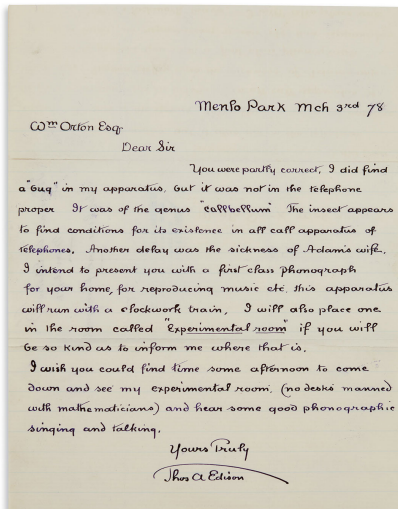 Menlo Park Mch 3rd 78
Wm Orton Esq.
Dear Sir
You were partly correct, I did find
a "bug" in my apparatus, but it was not in the telephone
proper It was of the genus "callbellum" The insect appears
to find conditions for its existence in all call apparatus of
telephones. Another delay was the sickness of Adam's wife.
I intend to present you with a first class phonograph
for your home, for reproducing music etc. this apparatus
will run with a clockwork train, I will also place one
in the room called "Experimental room" if you will
be so kind as to inform me where that is.
I wish you could find time some afternoon to come
down and see my experimental room, (no desks manned
with mathematicians) and hear some good phonographic
singing and talking.
Yours Truly
Thos A Edison